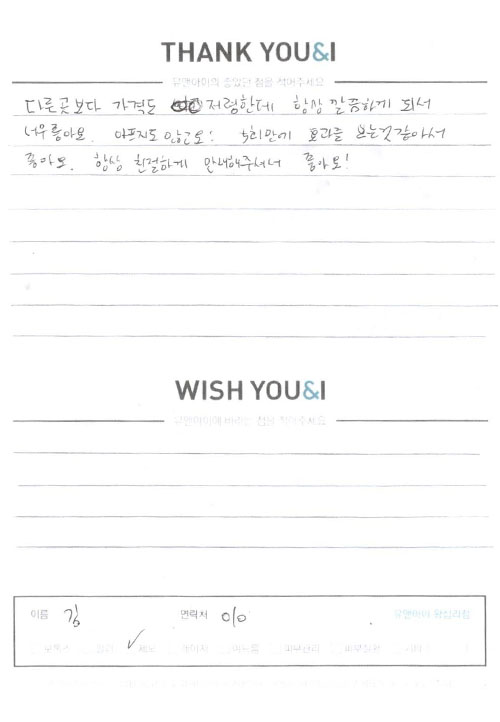 THANK YOU&I
유앤아이의 좋았던 점을 적어주세요
다른곳보다 가격도 저렴한데 항상 깔끔하게 되서
너무 좋아요. 아프지도 않고요! 5회만에 효과를 보는것같아서
좋아요. 항상 친절하게 안내해주셔서 좋아요!
WISH YOU&I
유앤아이에 바라는 점을 적어주세요
이름 김 연락처 010 유앤아이 왕십리점
보톡스 필러 ✓제모 레이저 피부관리